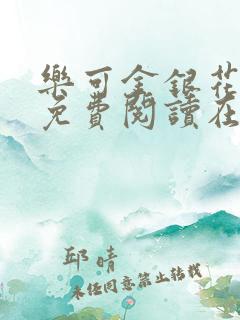 樂可金銀花
免費閱讀在
邱晴
未经同意禁止转载